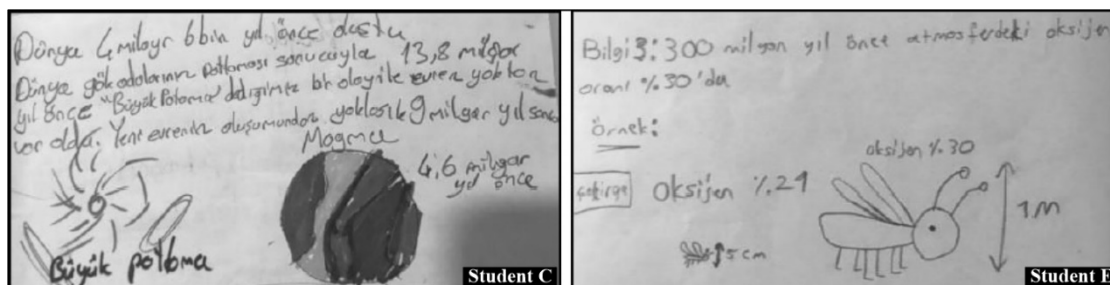 Dünya 4 milayr 6 bin yıl önce oluştu
Dünya gökadalarının patlaması sonucuyla 13,8 milyar
yıl önce "Büyük Patlama" dediğimiz bir olay ile evren yoktan
var oldu. Yeni evrenin oluşumundan yaklaşık 9 milyar yıl sonra
Magma
4,6 milyar
yıl önce
Büyük patlama
Student C
Bilgi 3: 300 milyon yıl önce atmosferdeki oksijen
oranı %30'du
örnek:
oksijen %30
çekirge
Oksijen %21
5 cm
1 M
Student E